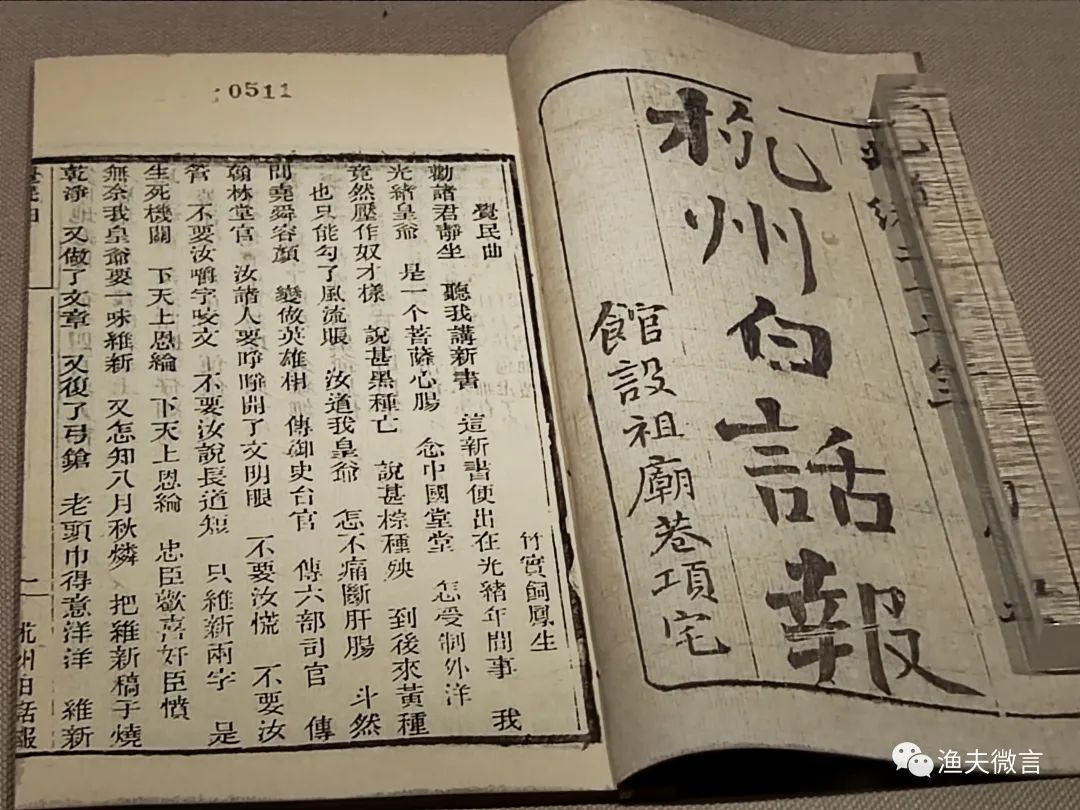 杭州白話報
館設祖廟巷項宅
0511
覺民曲 竹實飼鳳生
勸諸君靜坐 聽我講新書 這新書便出在光緒年間事 我
光緒皇爺 是一个菩薩心腸 念中國堂堂 怎受制外洋
竟然壓作奴才樣 說甚黑種亡 說甚棕種殃 到後來黃種
也只能勾了風流賬 汝道我皇爺 怎不痛斷肝腸 斗然
間堯舜容顏 變做英雄相 傳御史台官 傳六部司官 傳
翰林堂官 汝諸人要睜睜開了文明眼 不要汝慌 不要汝
管 不要汝嚼字咬文 不要汝說長道短 只維新兩字 是
生死機關 下天上恩綸 下天上恩綸 忠臣歡喜奸臣憤
無奈我皇爺要一味維新 又怎知八月秋燐 把維新稿子燒
乾淨 又做了文章 又復了弓鎗 老頭巾得意洋洋 維新
覺民曲 一 杭州白話報
渔夫微言